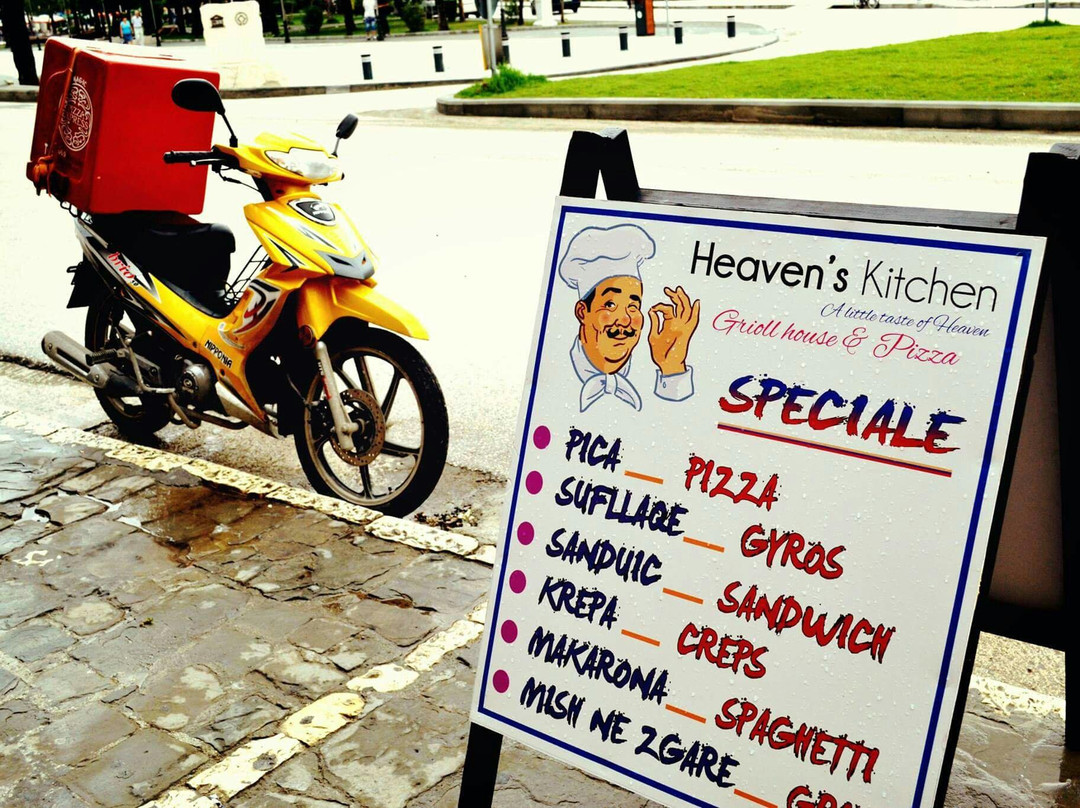 Heaven's Kitchen
A little taste of Heaven
Grioll house & Pizza
SPECIALE
PICA _ PIZZA
SUFLLAQE _ GYROS
SANDUIC _ SANDWICH
KREPA _ CREPS
MAKARONA _ SPAGHETTI
MISH NE ZGARE _
NIPPONIA
brio